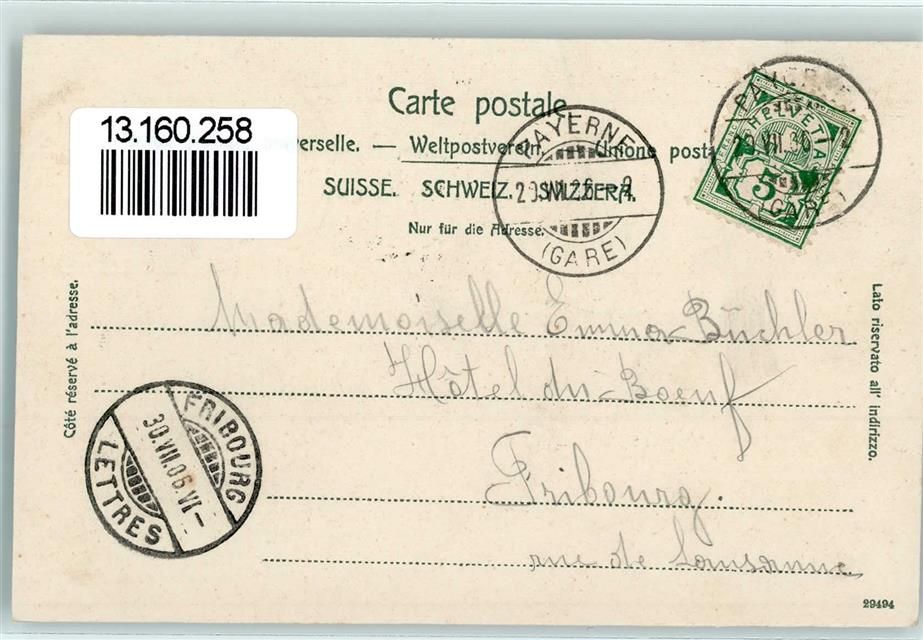 Carte postale
13.160.258
verselle. — Weltpostverein. Unione posta
SUISSE. SCHWEIZ. SVIZZERA.
Nur für die Adresse.
PAYERNE
29.VII.06 - 2
(GARE)
HELVETIA
5
29.VII.06 2
(GARE)
Côté réservé à l'adresse.
Lato riservato all' indirizzo.
Mademoiselle Emma Büchler
Hôtel du Boeuf
Fribourg.
rue de Lausanne
FRIBOURG
30.VII.06.VI-
LETTRES
29494